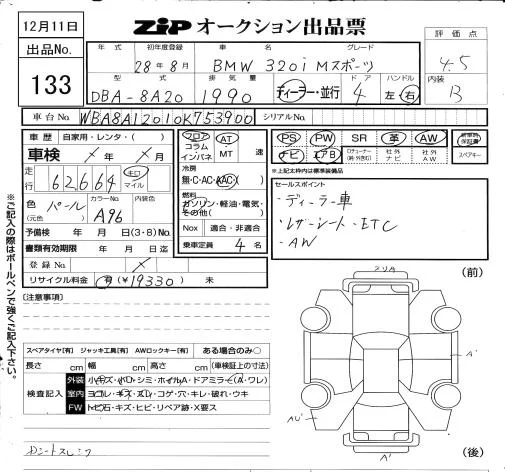 12月11日
ZIP オークション出品票
出品No.
133
評価点
4.5
内装
B
年式 初年度登録 車名 グレード
28年8月 BMW 320i Mスポーツ
型式 排気量 ドア ハンドル
DBA-8A20 1990 ディーラー・並行 4 左・右
車台No. WBA8A12010K753900 シリアルNo.
車歴 自家用・レンタ・( )
車検 × 年 × 月
走行 62664 キロ マイル
色(元色) パール カラーNo. A96 内装色
予備検 年 月 日(3・8)No.
書類有効期限 年 月 日迄
登録No. ×
リサイクル料金 有(¥19330) 未
フロア コラム インパネ AT・MT 速
冷房
無・C・AC・AAC( )
燃料
ガソリン・軽油・電気・その他( )
Nox 適合・非適合
乗車定員 4 名
PS PW SR 革 AW 新車時保証書
ナビ エアB 社外ナビ 社外AW スペアキー
*上記太枠内は標準装備品
セールスポイント
・ディーラー車
・レザーシート・ETC
・AW
※ご記入の際はボールペンで強くご記入下さい。
[注意事項]
(前)
スペアタイヤ[有] ジャッキ工具[有] AWロックキー[有] ある場合のみ○
長さ cm 幅 cm 高さ cm (車検証上の寸法)
検査記入
外装 小キズ・小凹・シミ・ホイルA・ドアミラー(A・ワレ)
室内 ヨゴレ・キズ・スレ・コゲ・穴・キレ・破れ・ウキ
FW トビ石・キズ・ヒビ・リペア跡・X要ス
Dシートスレ
A'
A'
(後)